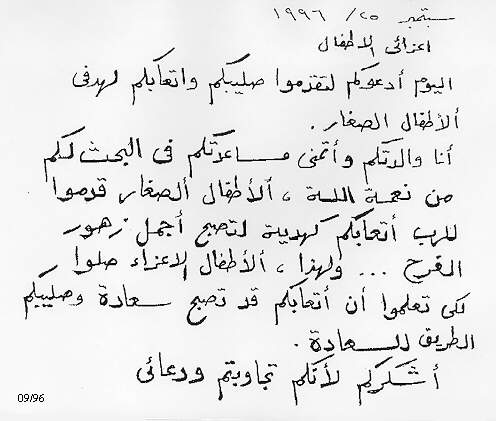 سبتمبر ٢٥/ ١٩٩٦
اعزائى الاطفال
اليوم أدعوكم لتقدموا صليبكم واتعابكم لهدفى
ألأطفال الصغار.
أنا والدتكم وأتمنى مساعدتكم فى البحث لكم
من نعمة اللـه ، ألأطفال ألصغار قدموا
للرب أتعابكم كهدية لتصبح أجمل زهور
الفرح ... ولهذا ، ألأطفال الاعزاء صلوا
لكى تعلموا أن أتعابكم قد تصبح سعادة وصليبكم
الطريق للسعادة .
أشكركم لأنكم تجاوبتم ودعائى
09/96